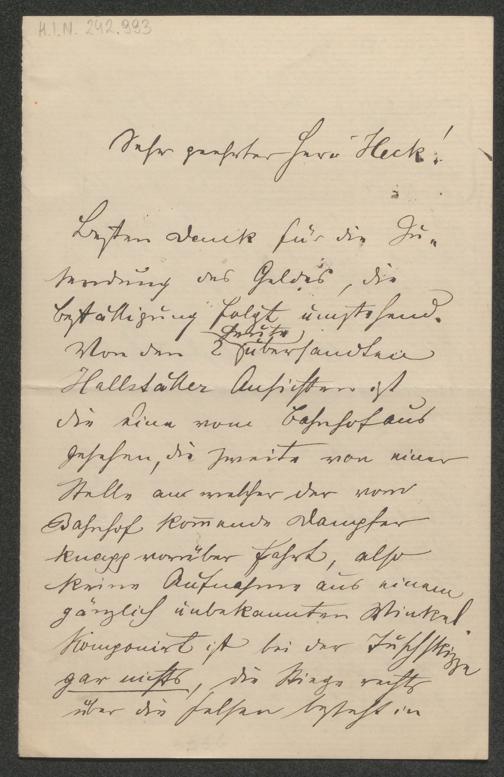 H.I.N. 242.993
Sehr geehrter Herr Heck!
Besten Dank für die Zu-
sendung des Geldes, die
Bestättigung folgt umstehend.
Von den 2 heute übersandten
Hallstätter Ansichten ist
die eine vom Bahnhof aus
gesehen, die zweite von einer
Stelle an welcher der vom
Bahnhof kommende Dampfer
knapp vorüber fährt, also
keine Aufnahme aus einem
gänzlich unbekannten Winkel
Komponirt ist bei der Tuschskizze
gar nichts, die Stiege rechts
über die Felsen besteht in